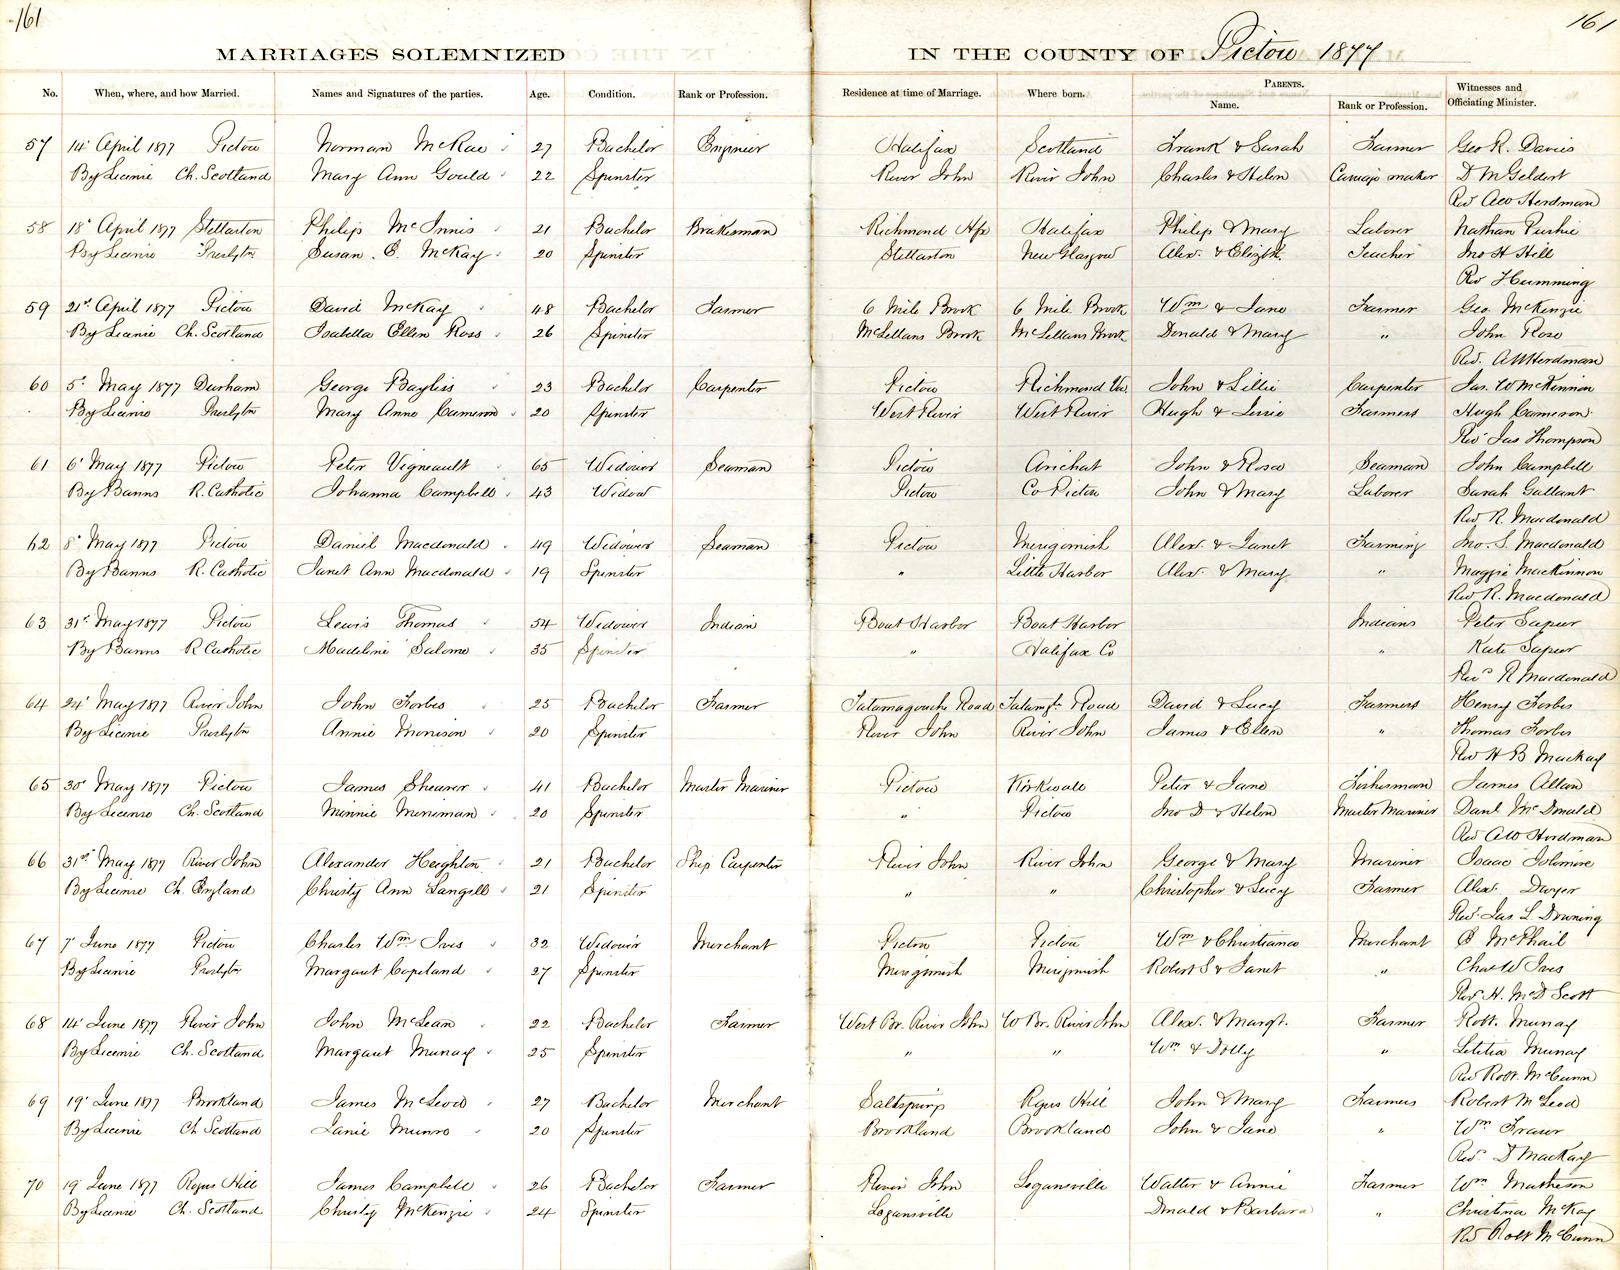 161
161
MARRIAGES SOLEMNIZED IN THE COUNTY OF Pictou 1877
No. When, where, and how Married. Names and Signatures of the parties. Age. Condition. Rank or Profession. Residence at time of Marriage. Where born. PARENTS. Name. Rank or Profession. Witnesses and Officiating Minister.
57 14 April 1877 Pictou Norman McRae 27 Bachelor Engineer Halifax Scotland Frank & Sarah Farmer Geo R. Davies
By Licence Ch. Scotland Mary Ann Gould 22 Spinster River John River John Charles & Helen Carriage maker D M Geldert
Rev A W Herdman
58 18 April 1877 Stellarton Philip McInnis 21 Bachelor Brakesman Richmond Hfx Halifax Philip & Mary Laborer Nathan
By Licence Presbytn Susan. E. McKay 20 Spinster Stellarton New Glasgow Alex. & Elizth Teacher Jno H Hill
Rev
59 21st April 1877 Pictou David McKay 48 Bachelor Farmer 6 Mile Brook 6 Mile Brook Wm & Jane Farmer Geo. McKenzie
By Licence Ch. Scotland Isabella Ellen Ross 26 Spinster McLellans Brook McLellans Brook Donald & Mary " John Ross
Rev. A W Herdman
60 5 May 1877 Durham George Baylis 23 Bachelor Carpenter Pictou Richmond Va. John & Lillie Carpenter Jas. W McKinnon
By Licence Presbytn Mary Anne Cameron 20 Spinster West River West River Hugh & Farmers Hugh Cameron
Rev Jas Thompson
61 6 May 1877 Pictou Peter Vigneault 65 Widower Seaman Pictou Arichat John & Rose Seaman John Campbell
By Banns R. Catholic Johanna Campbell 43 Widow Pictou Co Pictou John & Mary Laborer Sarah Gallant
Rev R. Macdonald
62 8 May 1877 Pictou Daniel Macdonald 49 Widower Seaman Pictou Merigomish Alex. & Janet Farming Jno. S. Macdonald
By Banns R. Catholic Janet Ann Macdonald 19 Spinster " Little Harbor Alex. & Mary " Maggie MacKinnon
Rev R. Macdonald
63 31st May 1877 Pictou Lewis Thomas 54 Widower Indian Boat Harbor Boat Harbor Indians Peter Sapier
By Banns R Catholic Madeline Salome 35 Spinster " Halifax Co " Kate Sapier
Rev R Macdonald
64 24 May 1877 River John John Forbes 25 Bachelor Farmer Tatamagouche Road Tatamge Road David & Lucy Farmers Henry Forbes
By Licence Presbytn Annie Morrison 20 Spinster River John River John James & Ellen " Thomas Forbes
Rev H B MacKay
65 30 May 1877 Pictou James Shearer 41 Bachelor Master Mariner Pictou Kirkwall Peter & Jane Fisherman James Allan
By Licence Ch. Scotland Minnie Merriman 20 Spinster " Pictou Jno D & Helen Master Mariner Danl McDonald
Rev A W Herdman
66 31st May 1877 River John Alexander Heighton 21 Bachelor Ship Carpenter River John River John George & Mary Mariner Isaac
By Licence Ch. England Christy Ann Langill 21 Spinster " " Christopher & Lucy Farmer Alex. Dwyer
Rev. Jas L Downing
67 7 June 1877 Pictou Charles Wm Ives 32 Widower Merchant Pictou Pictou Wm & Christianna Merchant McPhail
By Licence Presbytn Margaret Copeland 27 Spinster Merigomish Merigomish Robert S & Janet " Chas W Ives
Rev. H. McD Scott
68 14 June 1877 River John John McLean 22 Bachelor Farmer West Br. River John W Br. River John Alex. & Margt. Farmer Robt. Murray
By Licence Ch. Scotland Margaret Murray 25 Spinster " " Wm & Dolly " Letitia Murray
Rev Robt. McCunn
69 19 June 1877 Brookland James McLeod 27 Bachelor Merchant Saltsprings Rogers Hill John & Mary Farmers Robert McLeod
By Licence Ch Scotland Janie Munro 20 Spinster Brookland Brookland John & Jane " Wm Fraser
Rev. D MacKay
70 19 June 1877 Rogers Hill James Campbell 26 Bachelor Farmer River John Logansville Walter & Annie Farmer Wm Matheson
By Licence Ch. Scotland Christy McKenzie 24 Spinster Logansville Donald & Barbara " Christina McKay
Rev Robt McCunn